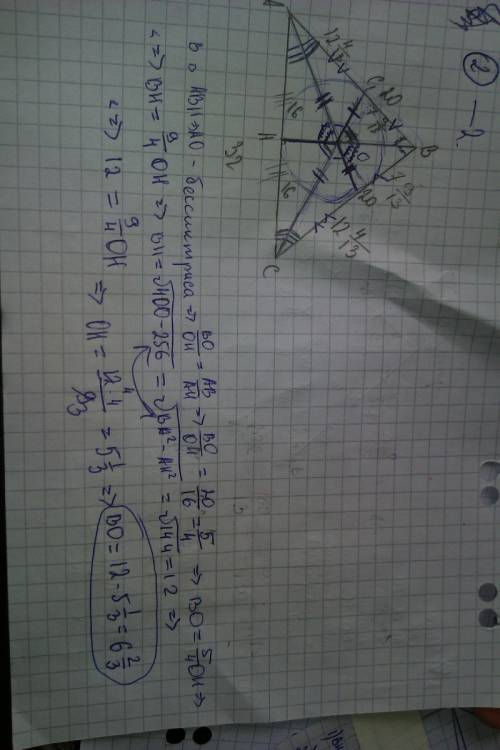 ② -2
A
12 4/13
G
20
B
7 9/13
O
20
12 4/13
C
16
H
16
32
в △ ABH => AO - бессиктриса => BO/OH = AB/AH => BO/OH = 20/16 = 5/4 => BO = 5/4 OH =>
<=> BH = 9/4 OH => BH = √400-256 = √BA²-AH² = √144 = 12 =>
<=> 12 = 9/4 OH => OH = 12·4/9 = 5 1/3 => BO = 12 - 5 1/3 = 6 2/3